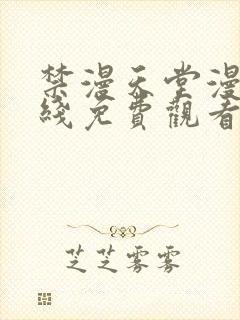 禁漫天堂漫
綫免費觀看
芝芝雾雾